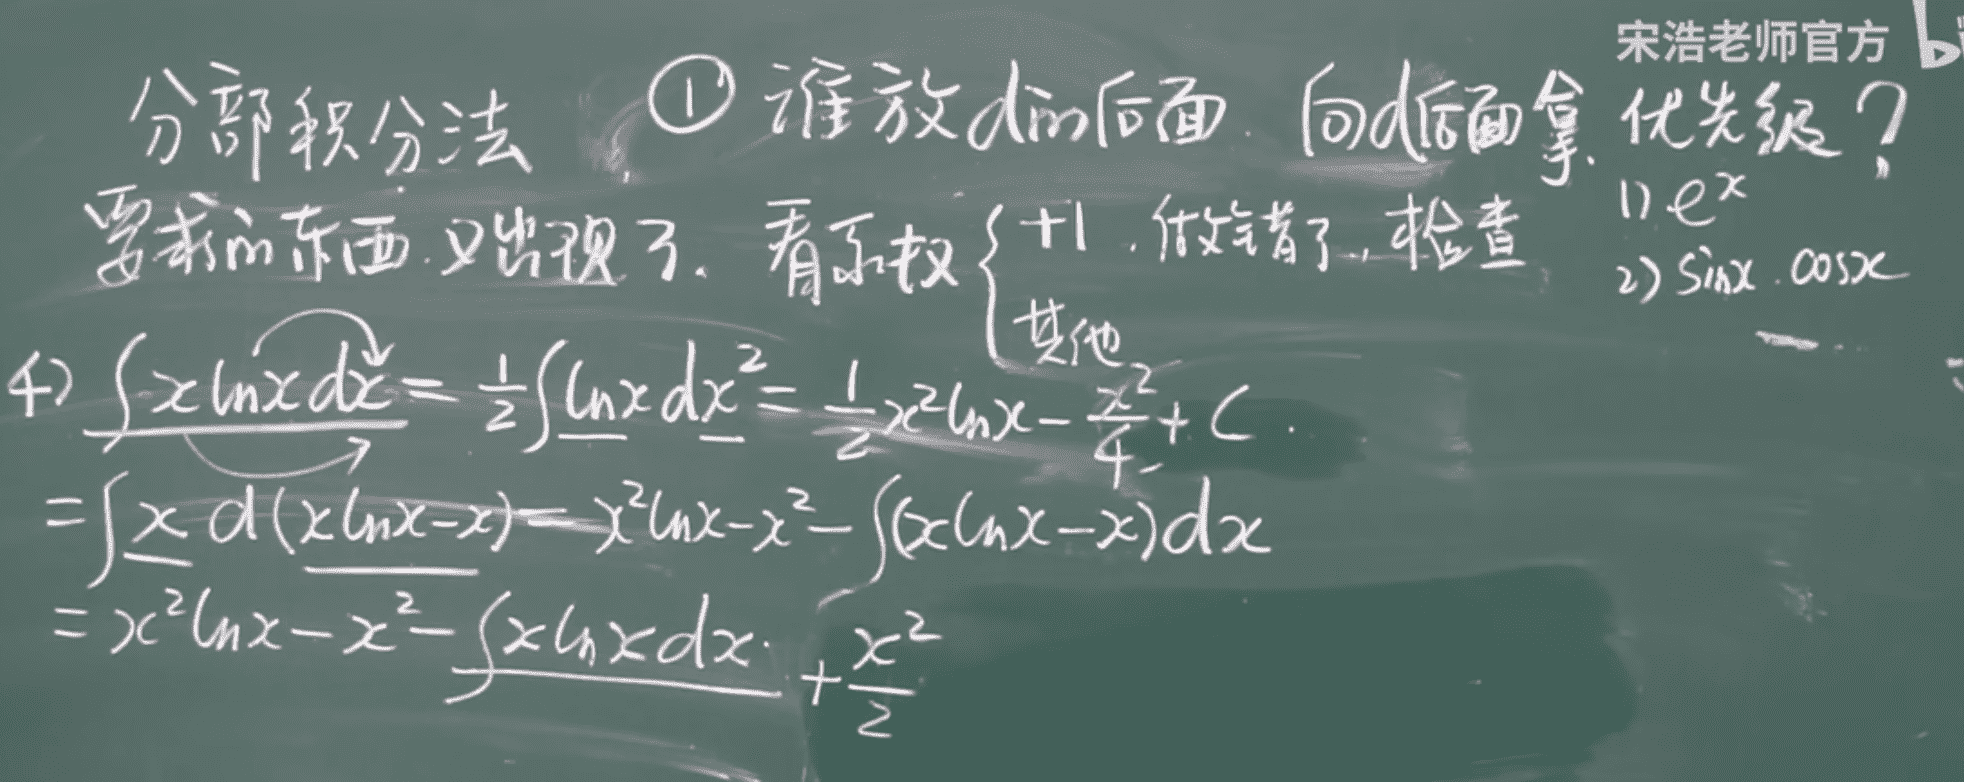 宋浩老师官方
分部积分法 ① 谁放d的后面. 向d后面拿. 优先级?
1) e^x
要求的东西.又出现了. 看系数 { +1. 做错了, 检查
其他
2) sinx . cosx
4) ∫x lnx dx = 1/2 ∫lnx dx² = 1/2 x² lnx - x²/4 + C .
= ∫x d(x lnx - x) = x² lnx - x² - ∫(x lnx - x)dx
= x² lnx - x² - ∫x lnx dx + x²/2